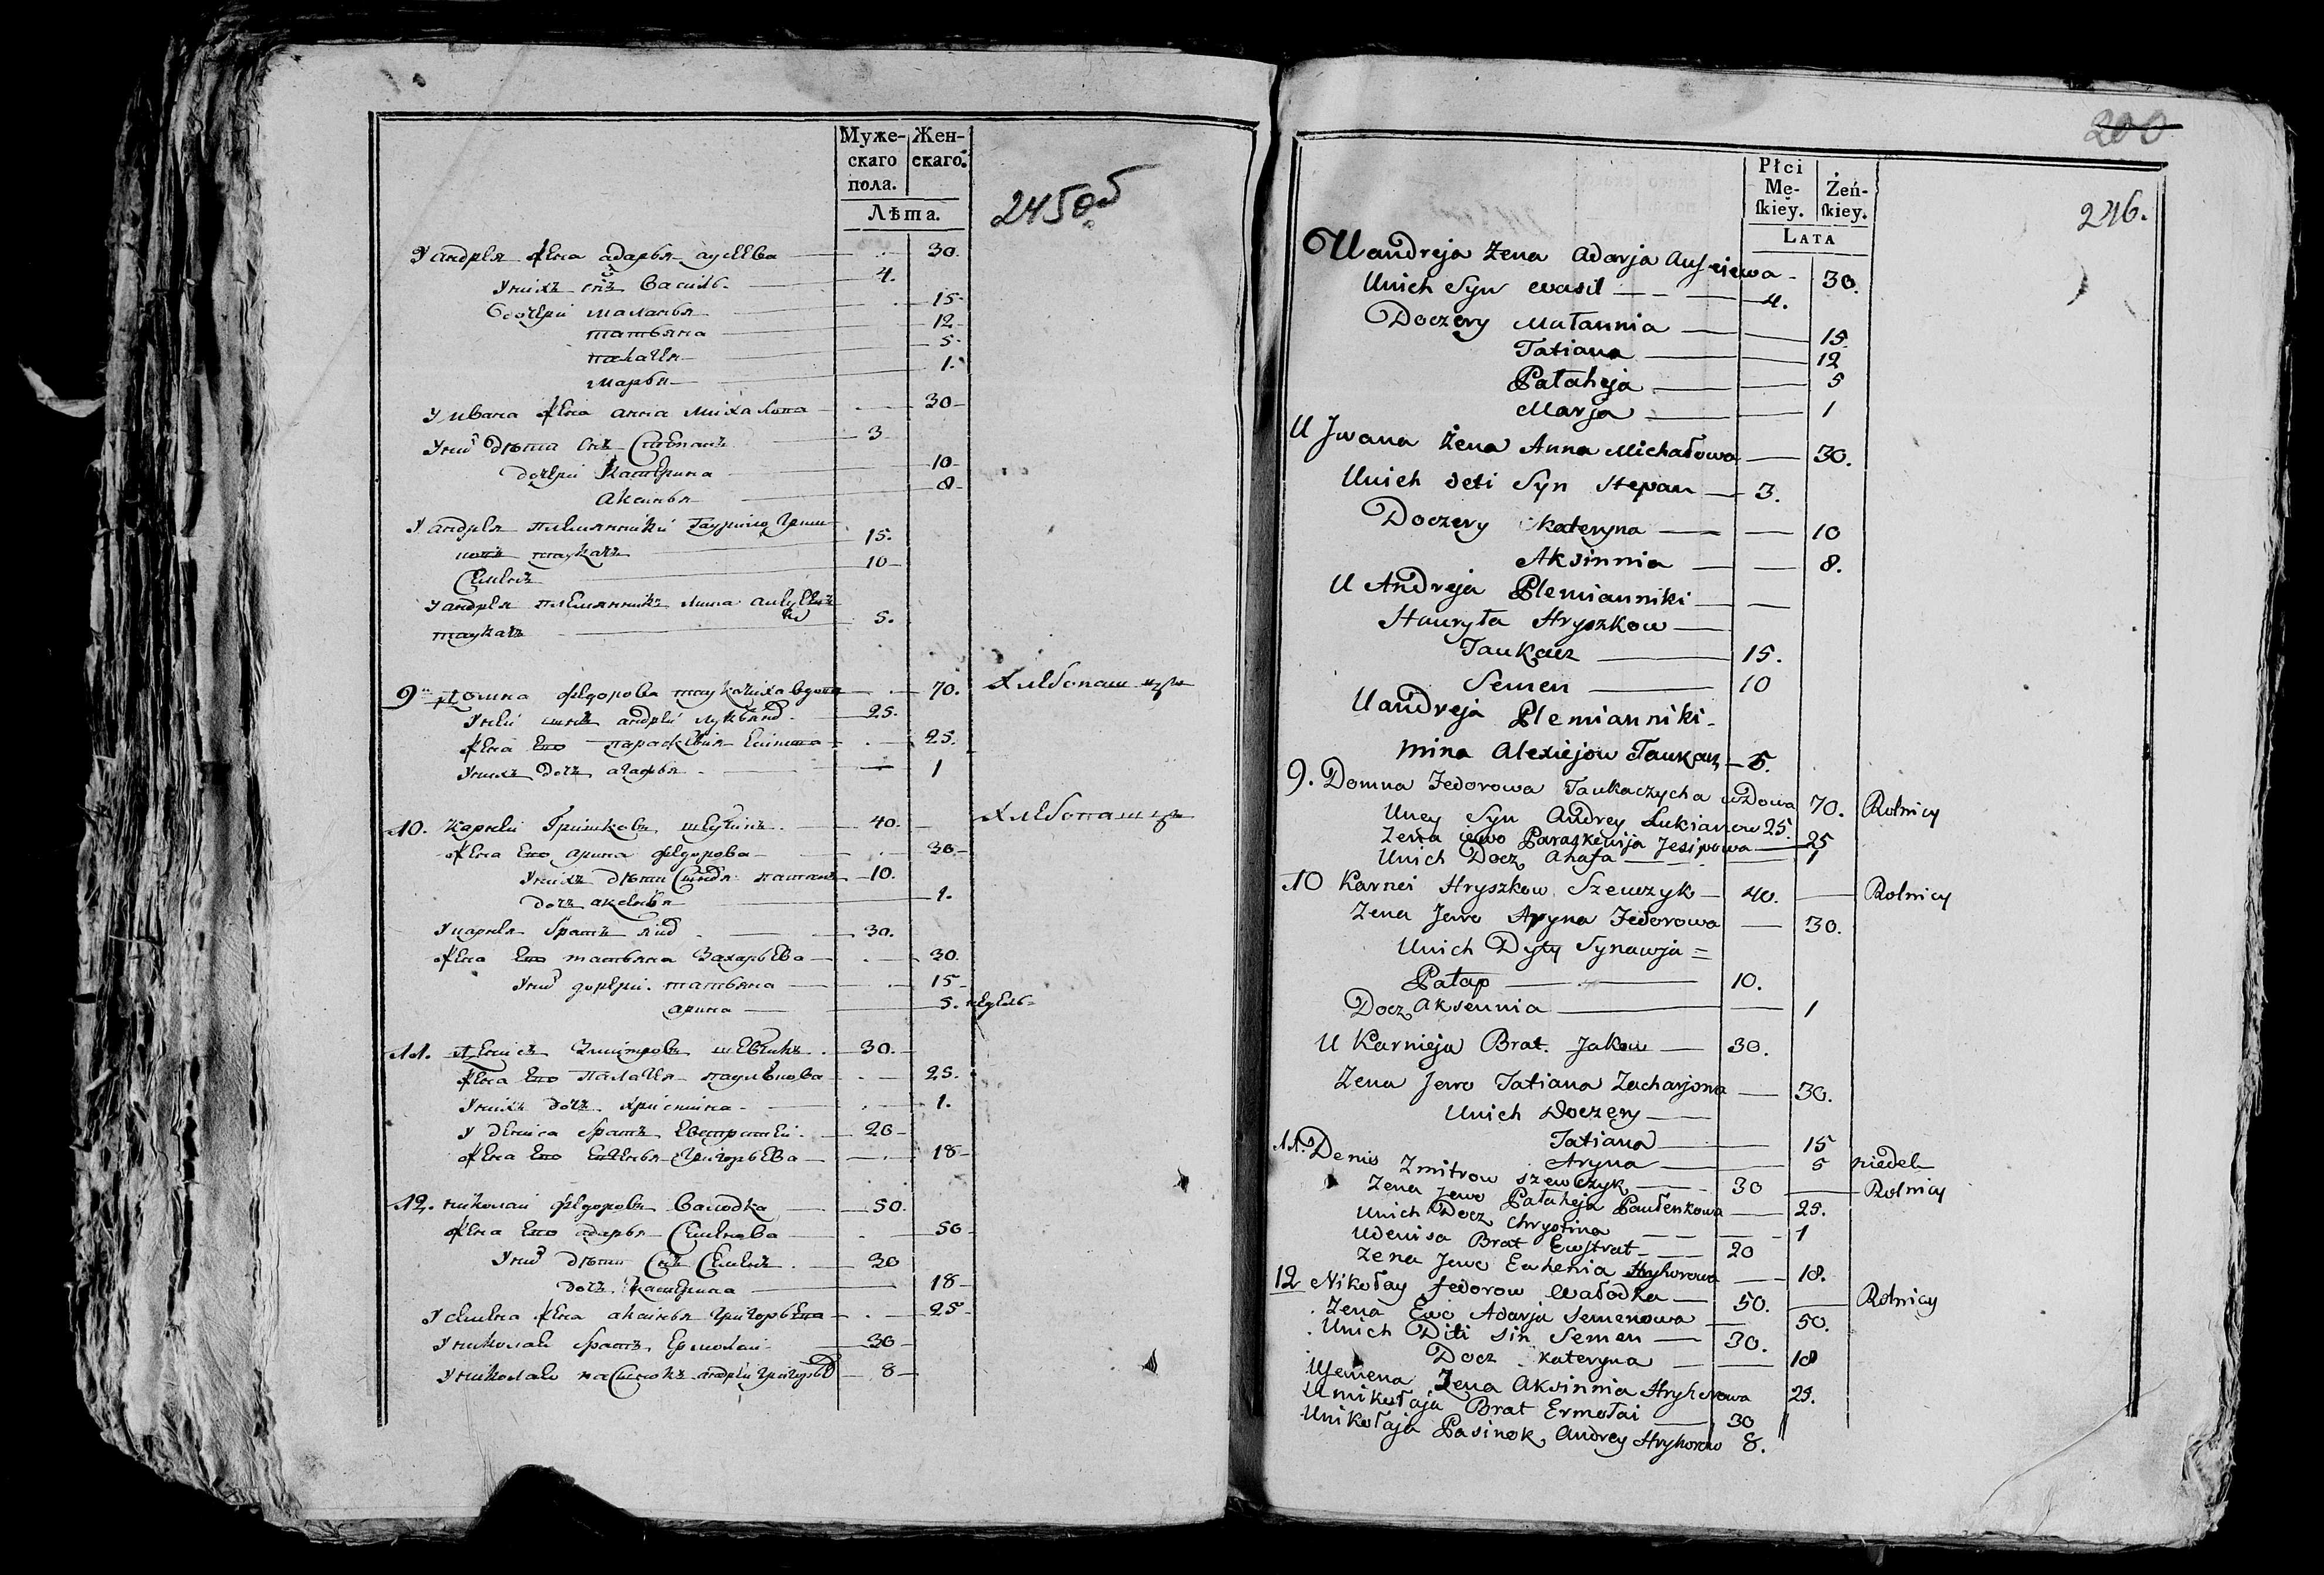 Муже-
скаго
пола.
Жен-
скаго.
Лѣта.
245об
У андрея жена адарья аусеева 30.
У нихъ снъ Василь 4.
Дочери маланья 15
татьяна 12
палагея 5
марья 1.
У ивана жена анна михалова 30
У них дѣти снъ Степанъ 3
дочери Катерина 10
аксинья 8
У андрея племянники Гаурило Гриш
ковъ таукачъ 15.
Семенъ 10
У андрея племянникъ мина алексеевъ
таукачъ 5.
9. Домна федорова таукачиха вдова 70. Хлебопашцы
У ней снъ андрей лукьянов 25.
жена Его параскевия Есипова 25.
У нихъ дочь агафья 1
10. Карней Гришковъ шевчикъ 40. Хлебопашцы
жена Его арина федорова 30
У нихъ дѣти сыновя патапъ 10.
дочь аксенья 1.
У карнея братъ яков 30.
жена Его татьяна Захарьева 30.
У них дочери татьяна 15
арина 5. недель
11. Денисъ Змитровъ шевчикъ 30.
жена Его палагея паулѣнкова 25.
У нихъ дочь христина 1.
У дениса братъ Евстратей 20
жена Его Евгенья Григорьева 18
12. николай федоровъ Валодка 50.
жена Его адарья Семенова 50
У них дѣти снъ Семенъ 30
дочь Катерина 18
У семена жена аксинья Григорьева 25
У николая братъ Ермолай 30
У николая пасинокъ андрей Григоров 8
200
Płci
Mę-
skiey.
Żeń-
skiey.
LATA
246.
U andreja żena adarja Auseiewa 30.
Unich Syn wasil 4.
Doczery Małannia 15.
Tatiana 12
Pałaheja 5
Marja 1
U Jwana żena Anna Michałowa 30.
Unich deti Syn Stepan 3.
Doczery Kateryna 10
Aksinnia 8.
U Andreja Plemianniki
Hauryła Hryszkow
Taukacz 15.
Semen 10
U andreja Plemianniki
Mina Alexiejow Taukacz 5.
9. Domna Fedorowa Taukaczycha wdowa 70. Rolnicy
Uney Syn Andrey Lukianow 25.
Zena iewo Paraskewija Jesipowa 25
Unich Docz Ahafa 1
10 Karnei Hryszkow Szewczyk 40. Rolnicy
Zena Jewo Aryna Fedorowa 30.
Unich Dyty Synawja =
Patap 10.
Docz Aksennia 1
U Karnieja Brat. Jakow 30.
Zena Jewo Tatiana Zacharjowa 30.
Unich Doczery
Tatiana 15
Aryna 5 niedel
11. Denis Zmitrow szewczyk 30 Rolnicy
Zena Jewo Pałaheja Paulenkowa 25.
Unich Docz Chrystina 1
Udenisa Brat Ewstrat 20
Zena Jewo Euhenia Hryhorowa 18.
12 Nikołay fedorow Wałodka 50. Rolnicy
Zena Ewo Adarja Semenowa 50.
Unich Diti sin Semen 30.
Docz kateryna 18
Usemena Zena Aksinnia Hryhorowa 25.
Umikołaja Brat Ermołai 30
Unikołaja Pasinok Andrey Hryhorow 8.